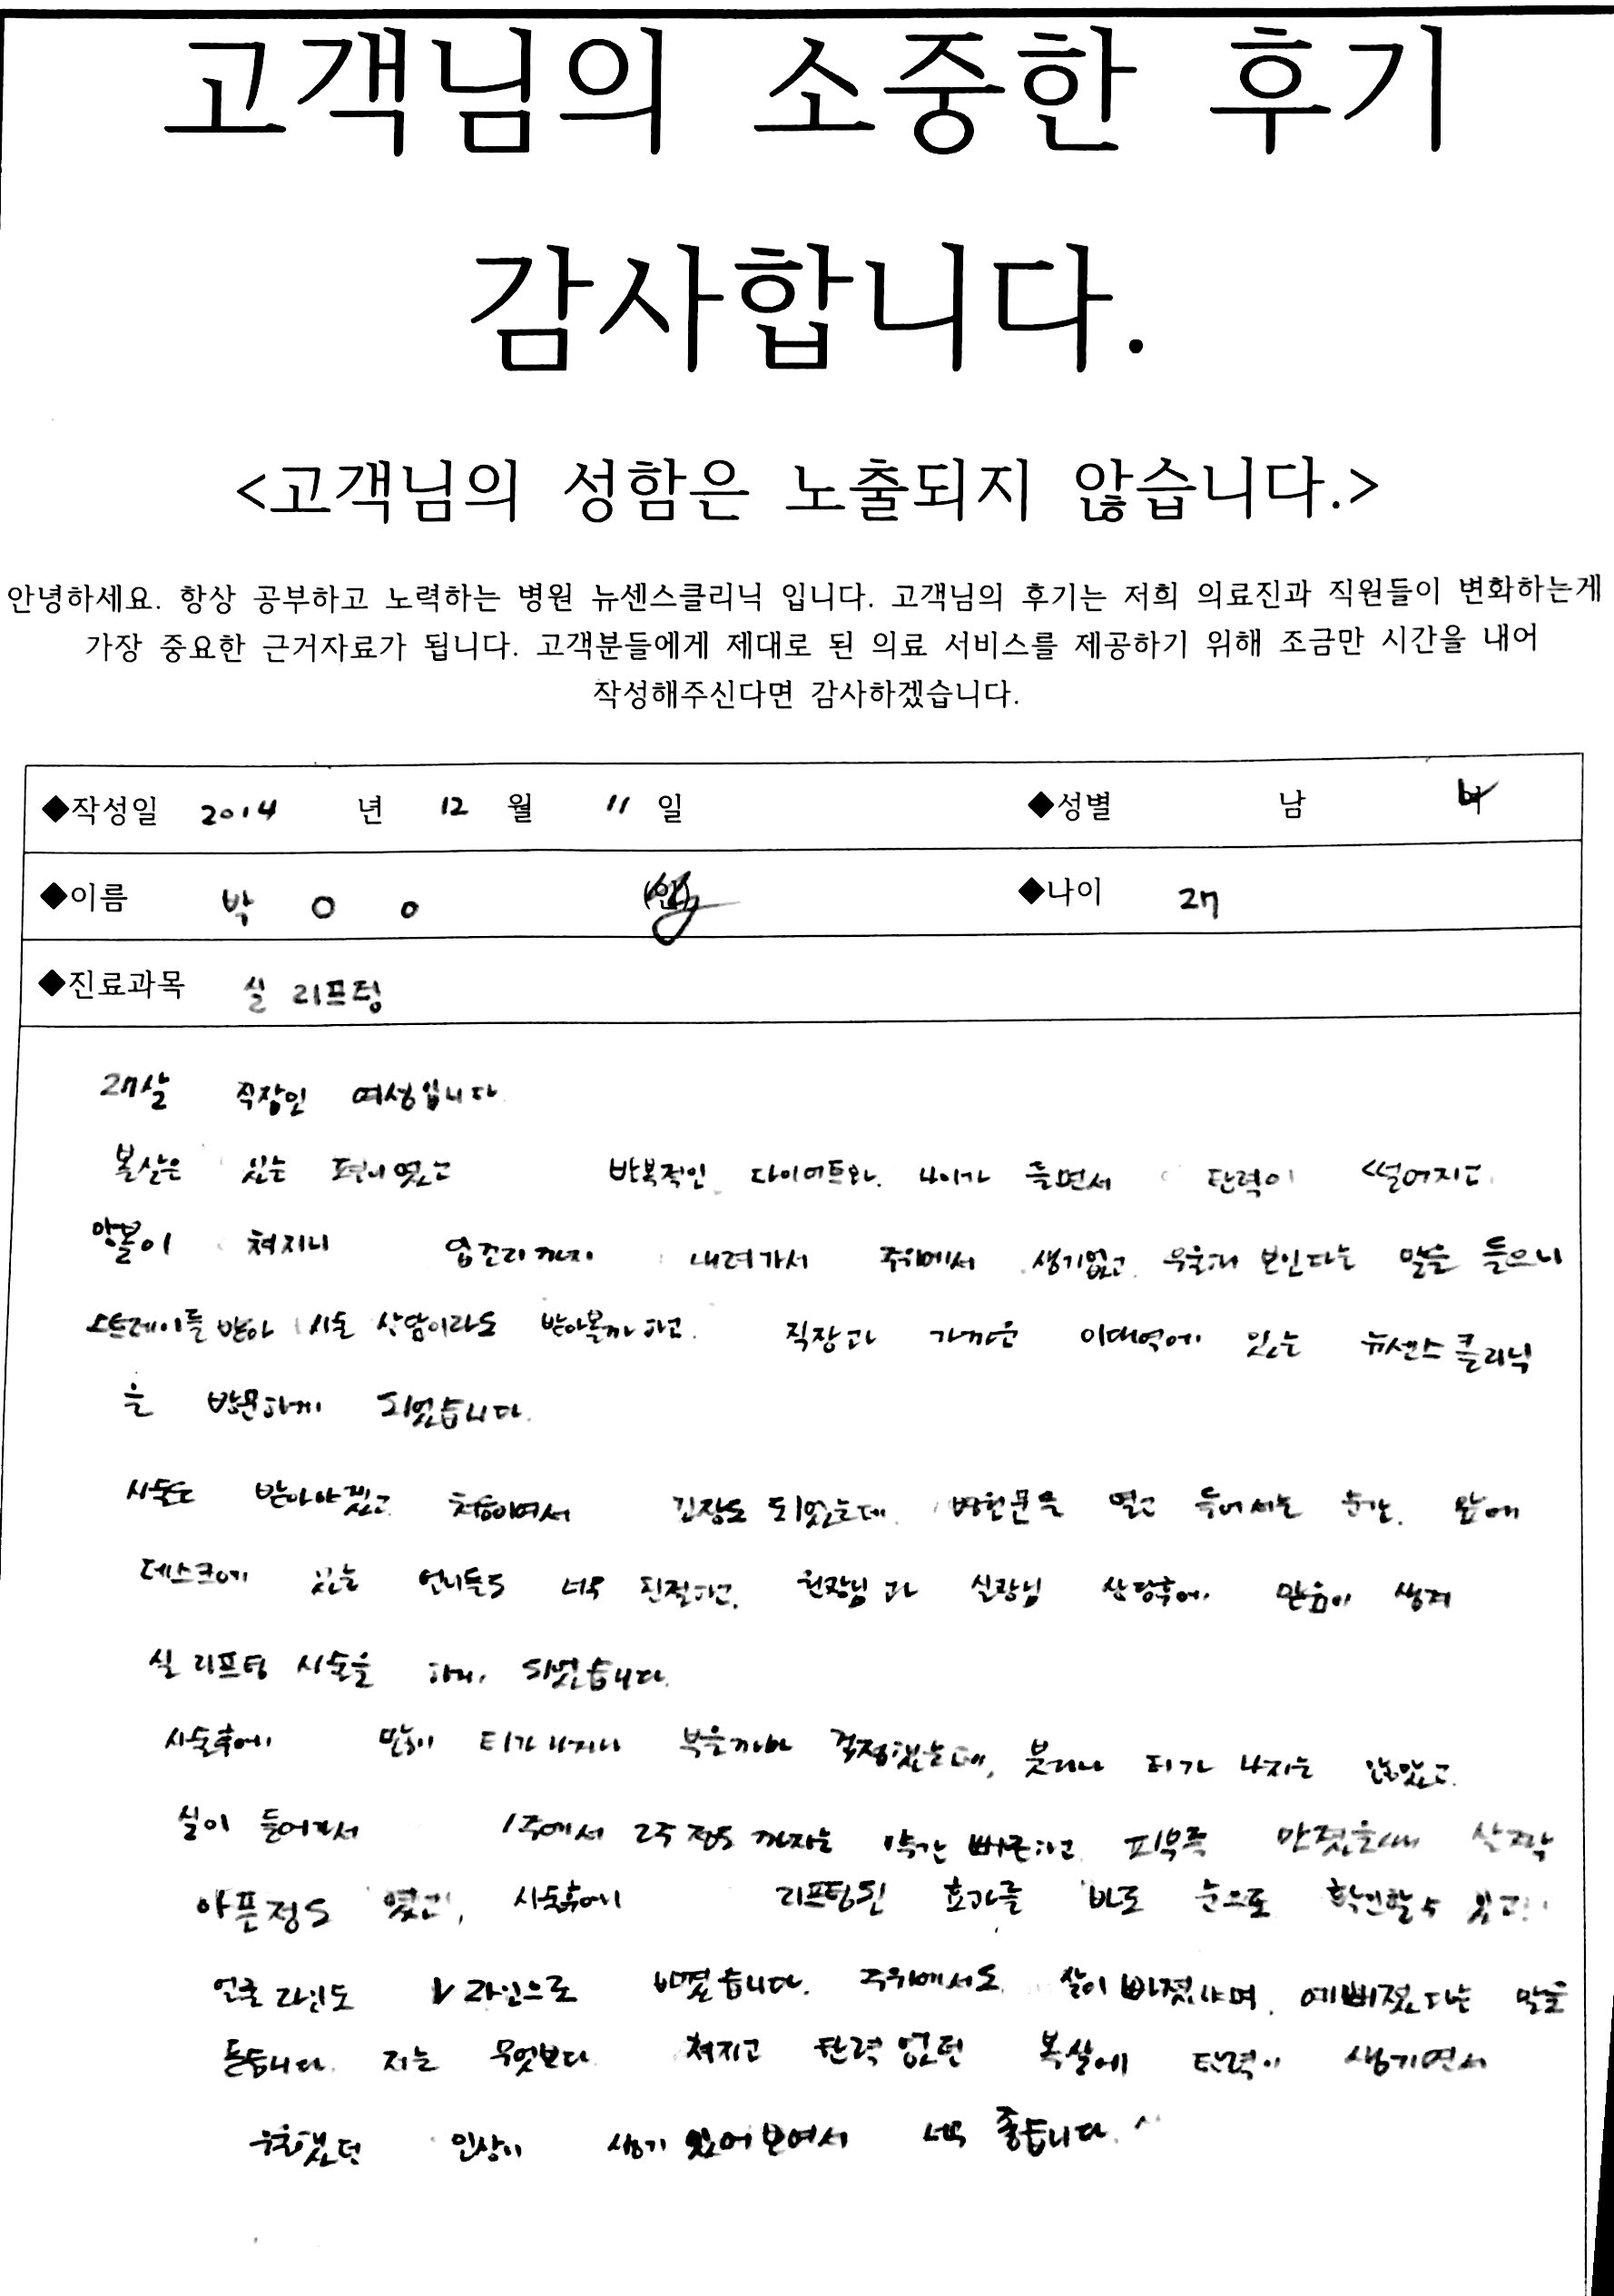 고객님의 소중한 후기
감사합니다.
<고객님의 성함은 노출되지 않습니다.>
안녕하세요. 항상 공부하고 노력하는 병원 뉴센스클리닉 입니다. 고객님의 후기는 저희 의료진과 직원들이 변화하는게
가장 중요한 근거자료가 됩니다. 고객분들에게 제대로 된 의료 서비스를 제공하기 위해 조금만 시간을 내어
작성해주신다면 감사하겠습니다.
◆작성일 2014 년 12 월 11 일 ◆성별 남 여
◆이름 박 O O (인) ◆나이 27
◆진료과목 실 리프팅
27살 직장인 여성입니다
볼살은 있는 편이였고 반복적인 다이어트와 나이가 들면서 탄력이 떨어지고
앞볼이 쳐지니 입꼬리까지 내려가서 주위에서 생기없고 우울해 보인다는 말을 들으니
스트레이를 받아 시술 상담이라도 받아볼까 하고. 직장과 가까운 이대역에 있는 뉴센스 클리닉
을 방문하게 되었습니다.
시술도 받아야겠고 처음이여서 긴장도 되었는데 병원문을 열고 들어서는 순간. 앞에
데스크에 있는 언니들도 너무 친절하고. 원장님과 실장님 상담후에 믿음이 생겨
실 리프팅 시술을 하게 되었습니다.
시술후에 많이 티가 나거나 부을까봐 걱정했는데, 붓거나 티가 나지는 않았고
실이 들어가서 1주에서 2주 정도 까지는 약간 뻐근하고 피부쪽 만졌을때 살짝
아픈정도 였고, 시술후에 리프팅된 효과를 바로 눈으로 확인할수 있고
얼굴 라인도 V라인으로 바꼈습니다. 주위에서도 살이 빠졌냐며 예뻐졌다는 말을
듣습니다. 저는 무엇보다 쳐지고 탄력 없던 볼살에 탄력이 생기면서
우울했던 인상이 생기 있어 보여서 너무 좋습니다. ^^